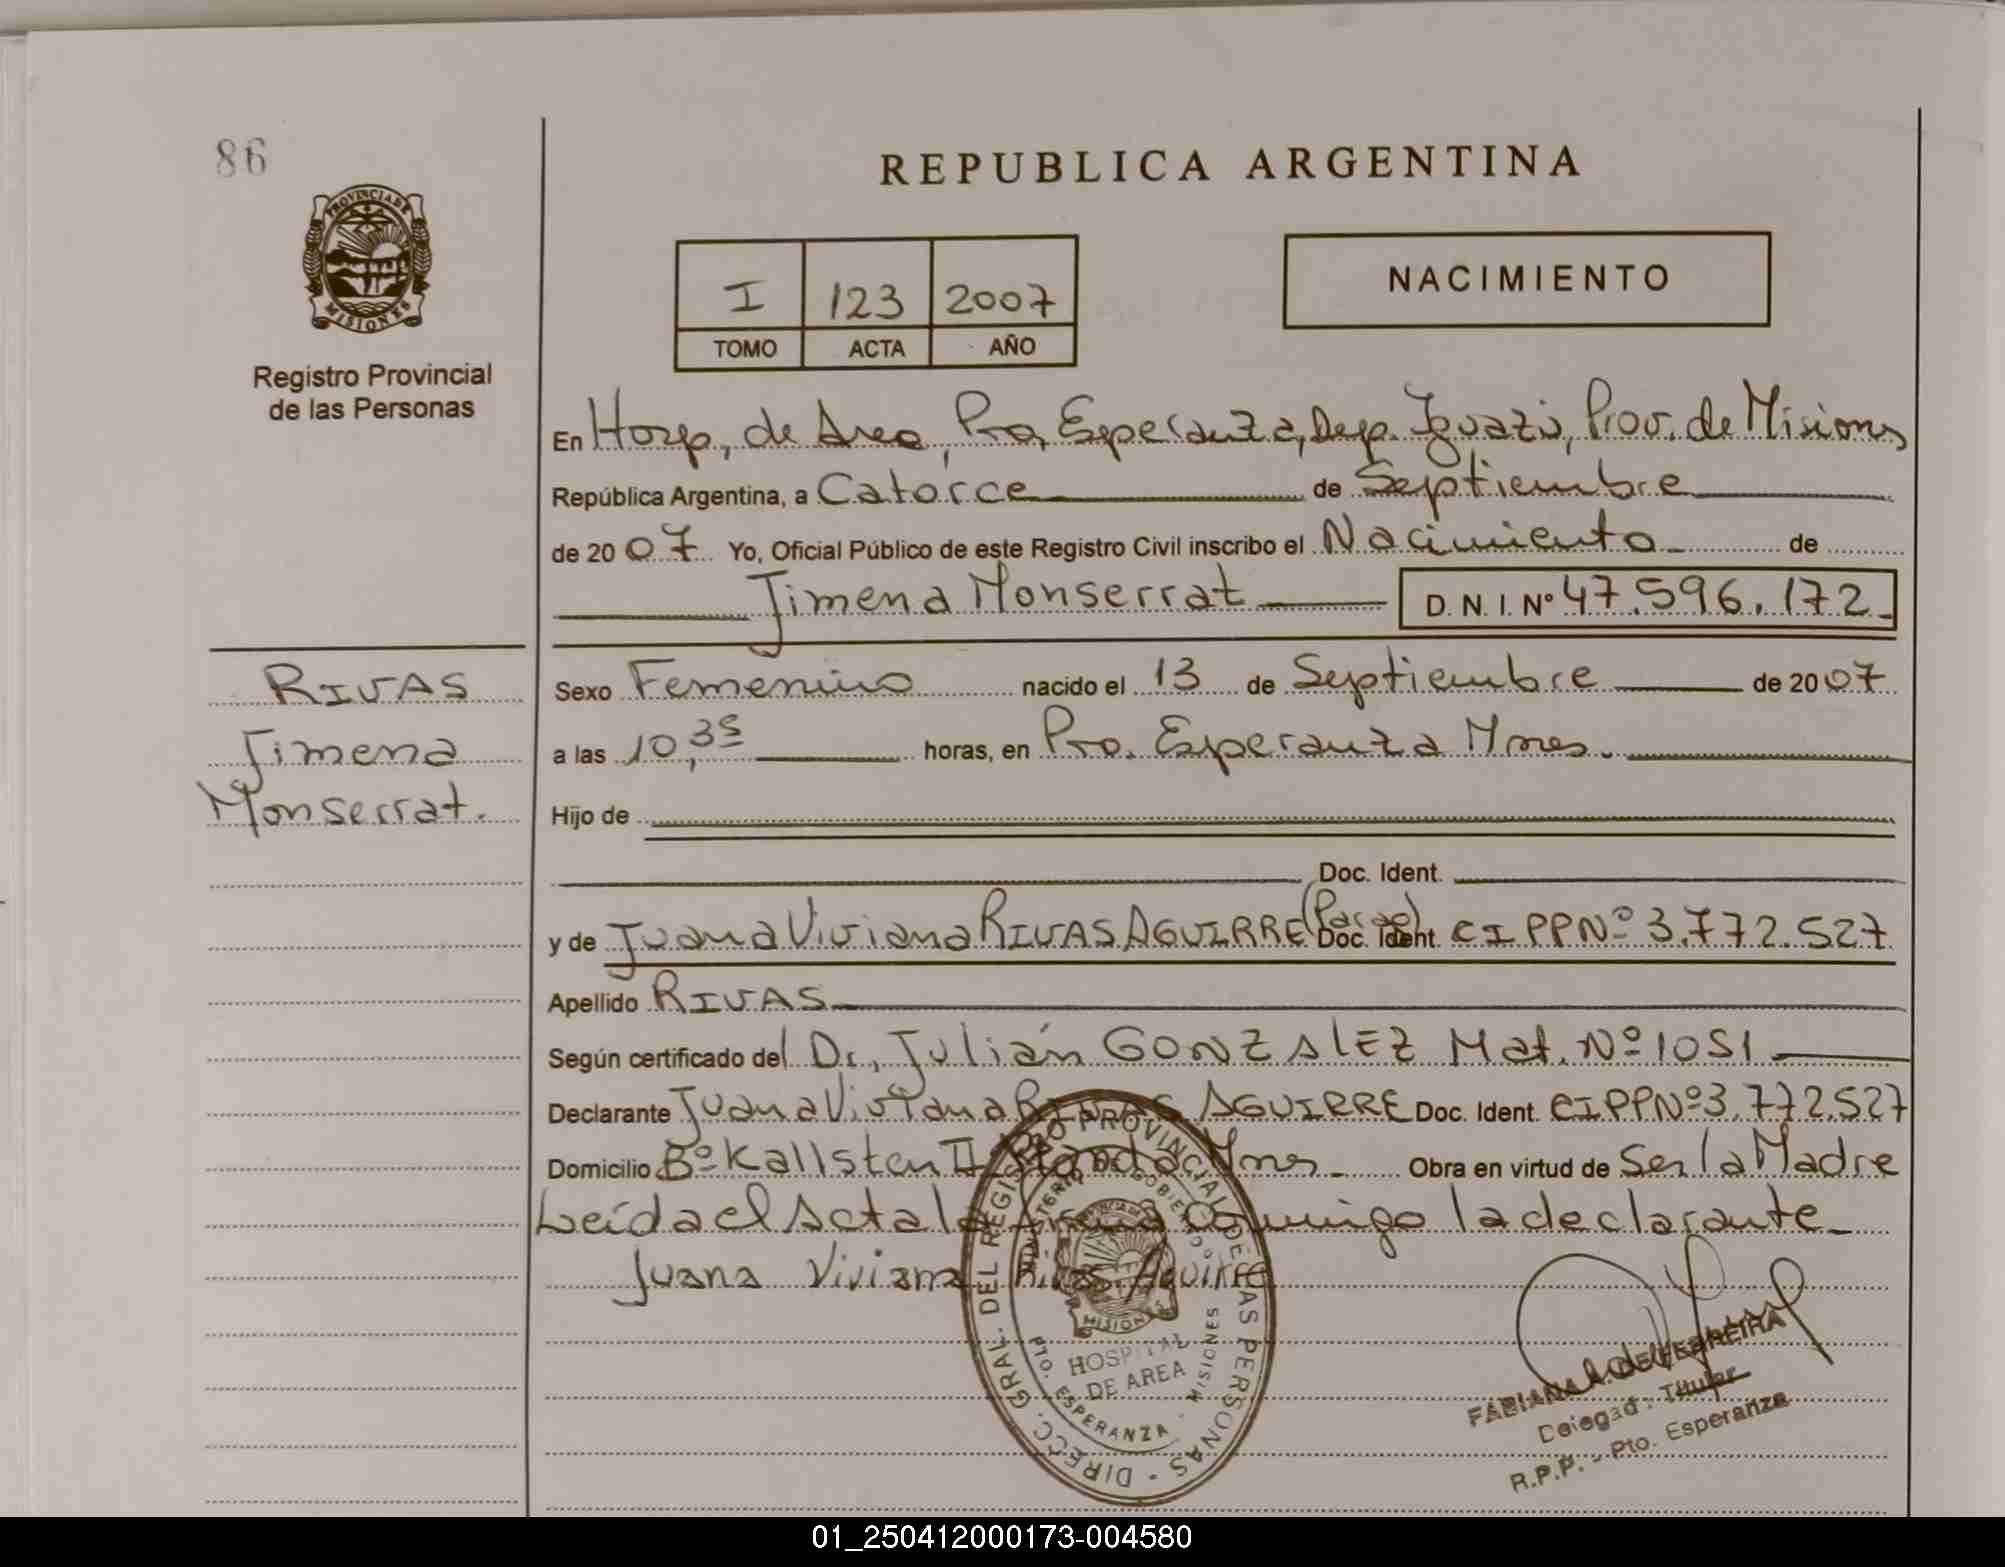 86
REPUBLICA ARGENTINA
PROVINCIA DE
MISIONES
Registro Provincial
de las Personas
I 123 2007
TOMO ACTA AÑO
NACIMIENTO
En Hosp, de Area, Pto, Esperanza, Dep. Iguazú, Prov. de Misiones
República Argentina, a Catorce de Septiembre
de 2007 Yo, Oficial Público de este Registro Civil inscribo el Nacimiento de
Jimena Monserrat D. N. I. Nº 47.596.172
RIVAS
Jimena
Monserrat.
Sexo Femenino nacido el 13 de Septiembre de 2007
a las 10,35 horas, en Pto. Esperanza Mnes.
Hijo de
Doc. Ident.
y de Juana Viviana RIVAS AGUIRRE (Parag) Doc. Ident. CI PPNº 3.772.527
Apellido RIVAS
Según certificado del Dr, Julián GONZALEZ Mat. Nº 1051
Declarante Juana Viviana RIVAS AGUIRRE Doc. Ident. CIPPNº3.772.527
Domicilio Bº Kallsten II Wanda Mnes Obra en virtud de Ser la Madre
Leída el Acta la firma conmigo la declarante
Juana Viviana Rivas Aguirre
DIRECC. GRAL. DEL REGISTRO PROVINCIAL DE LAS PERSONAS
MINISTERIO DE GOBIERNO
MISIONES
HOSPITAL
DE AREA
PTO. ESPERANZA - MISIONES
FABIANA DE FERREIRA
Delegada Titular
R.P.P. - Pto. Esperanza
01_250412000173-004580